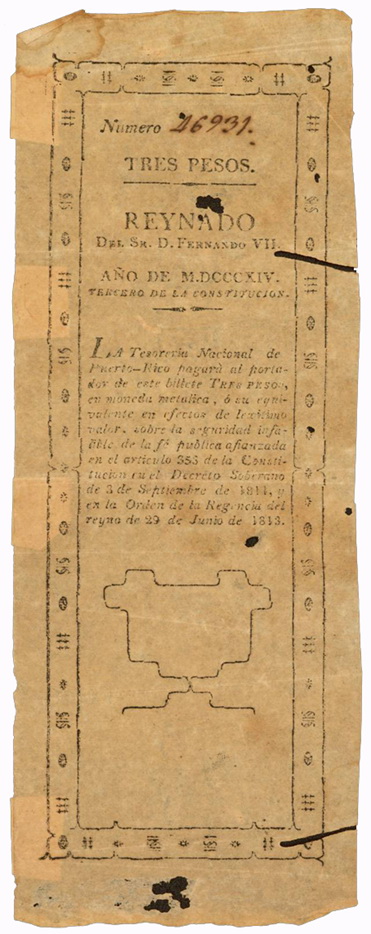 Numero 26931.
TRES PESOS.
REYNADO
DEL SR. D. FERNANDO VII.
AÑO DE M.DCCCXIV.
TERCERO DE LA CONSTITUCION.
LA Tesoreria Nacional de
Puerto-Rico pagará al porta-
dor de este billete TRES PESOS,
en moneda metalica, ó su equi-
valente en efectos de lexitimo
valor, sobre la seguridad infa-
lible de la fé publica afianzada
en el articulo 355 de la Consti-
tucion en el Decreto Soberano
de 3 de Septiembre de 1811, y
en la Orden de la Regencia del
reyno de 29 de Junio de 1813.